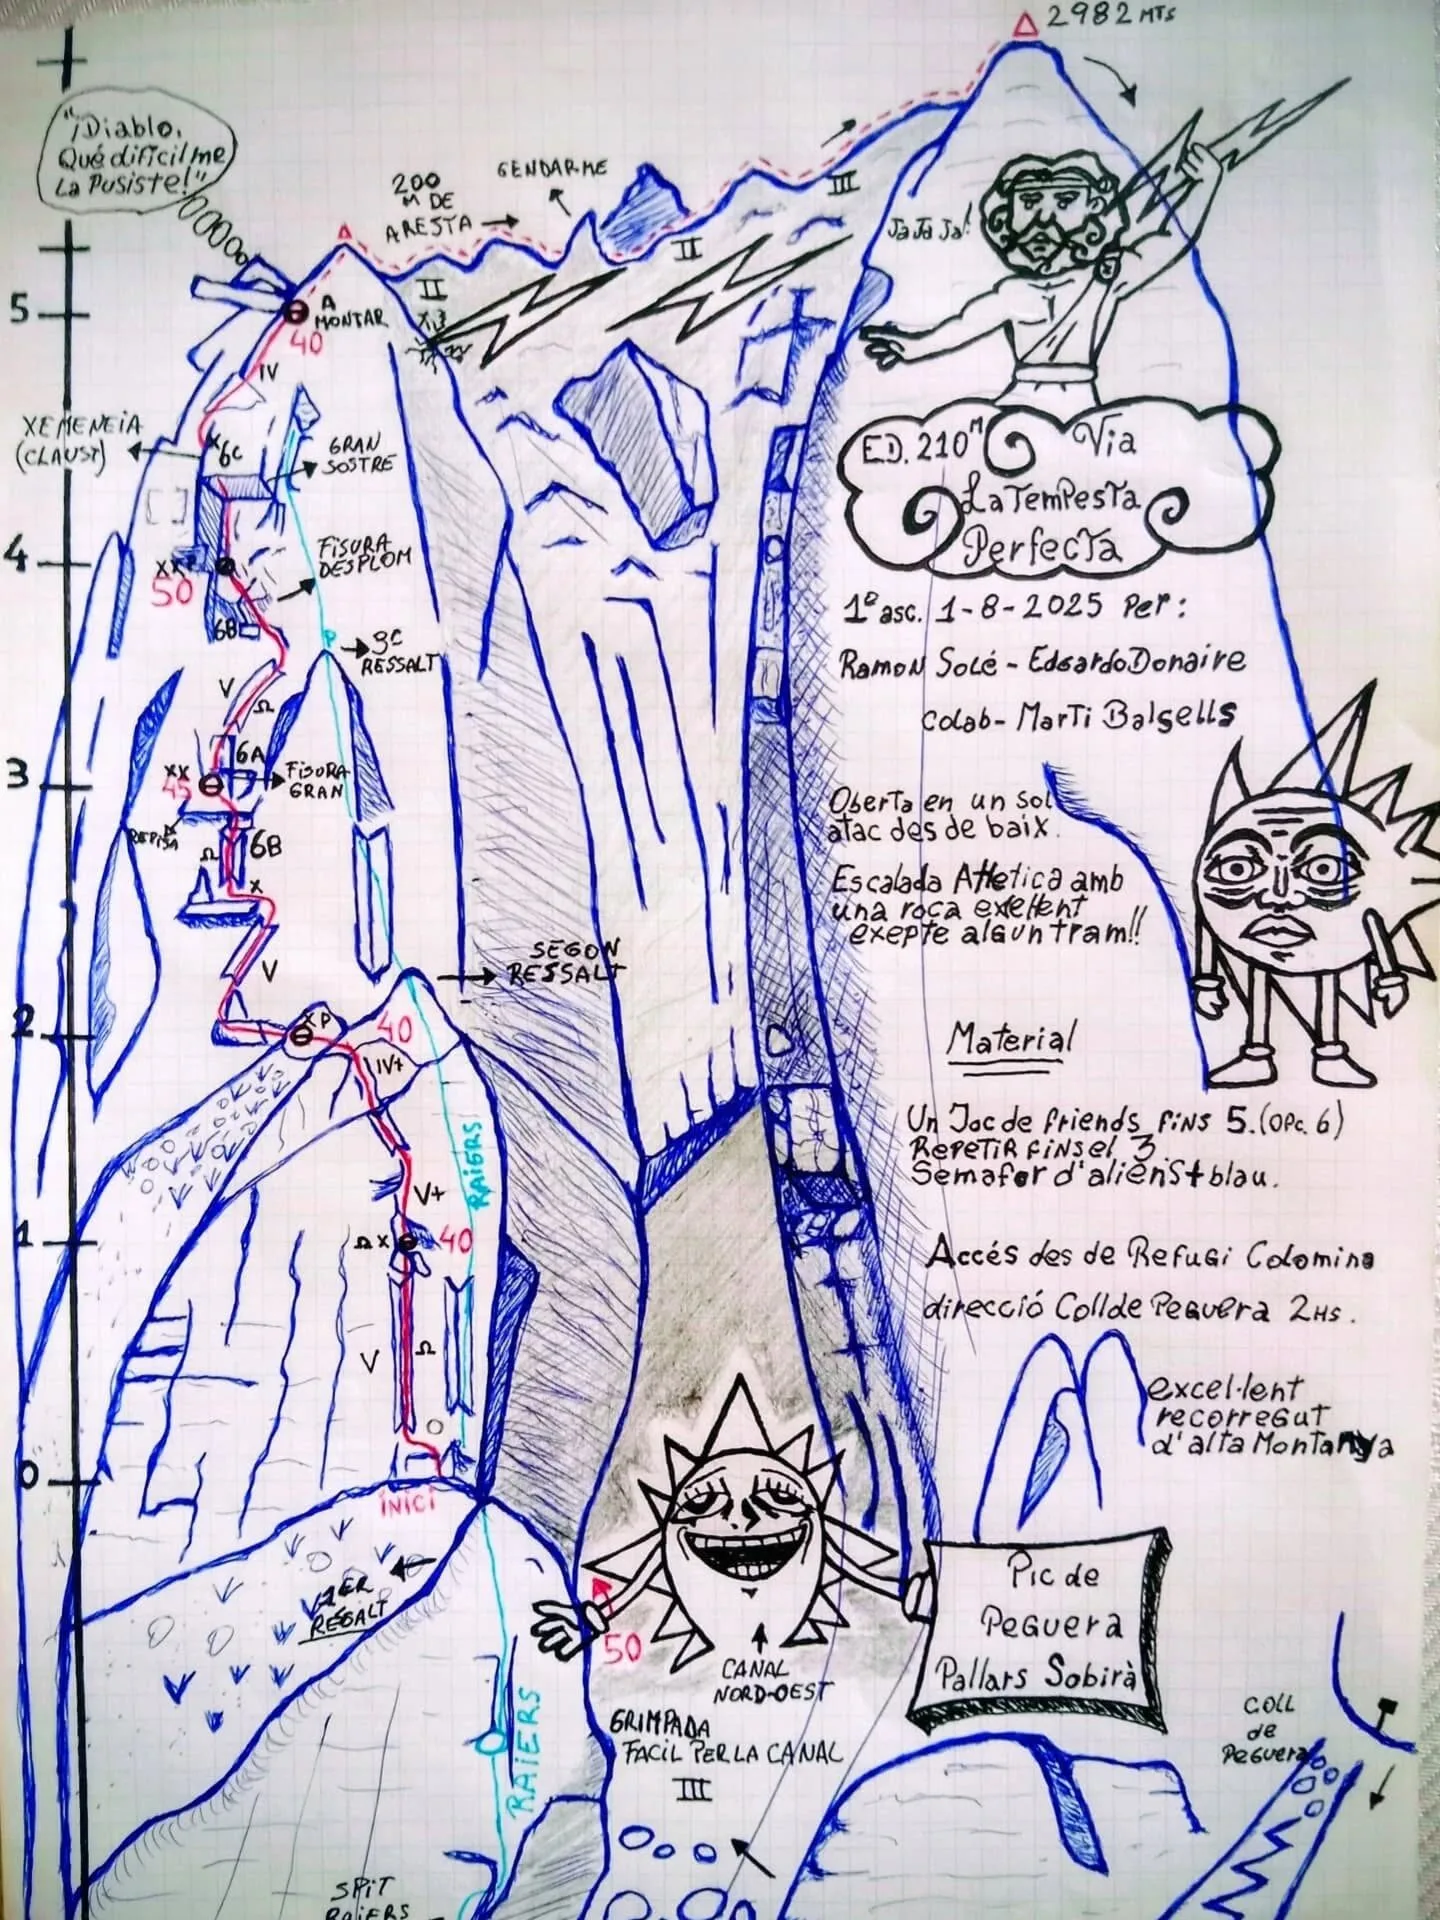 2982 MTS
"¡Diablo,
Qué dificil me
La Pusiste!"
200
M DE
ARESTA
GENDARME
III
II
II
JaJaJa!
5
A
MONTAR
40
IV
XEMENEIA
(CLAUST)
X
6C
GRAN
SOSTRE
ED. 210M Via
La Tempesta
Perfecta
4
XX
50
FISURA
DESPLOM
6B
P
3C
RESSALT
1ª asc. 1-8-2025 Per:
Ramon Solé - Edgardo Donaire
colab- Marti Balsells
V
Ω
3
XX
45
6A
FISURA
GRAN
REPISA
Ω
6B
X
V
Oberta en un sol
atac des de baix.
Escalada Atletica amb
una roca exellent
exepte algun tram!!
SEGON
RESSALT
2
XP
40
IV+
Material
Un Joc de friends fins 5. (OPC. 6)
REPETIR FINS el 3
Semafor d'aliens + blau.
RAIERS
V+
1
Ω X
40
Accés des de Refugi Colomina
direcció Coll de Peguera 2HS.
V
Ω
excel·lent
recorregut
d'alta Montanya
0
INICI
1ER
RESALT
50
CANAL
NORD-OEST
Pic de
Peguera
Pallars Sobirà
RAIERS
GRIMPADA
FACIL PER LA CANAL
III
COLL
de
Peguera
SPIT
RAIERS